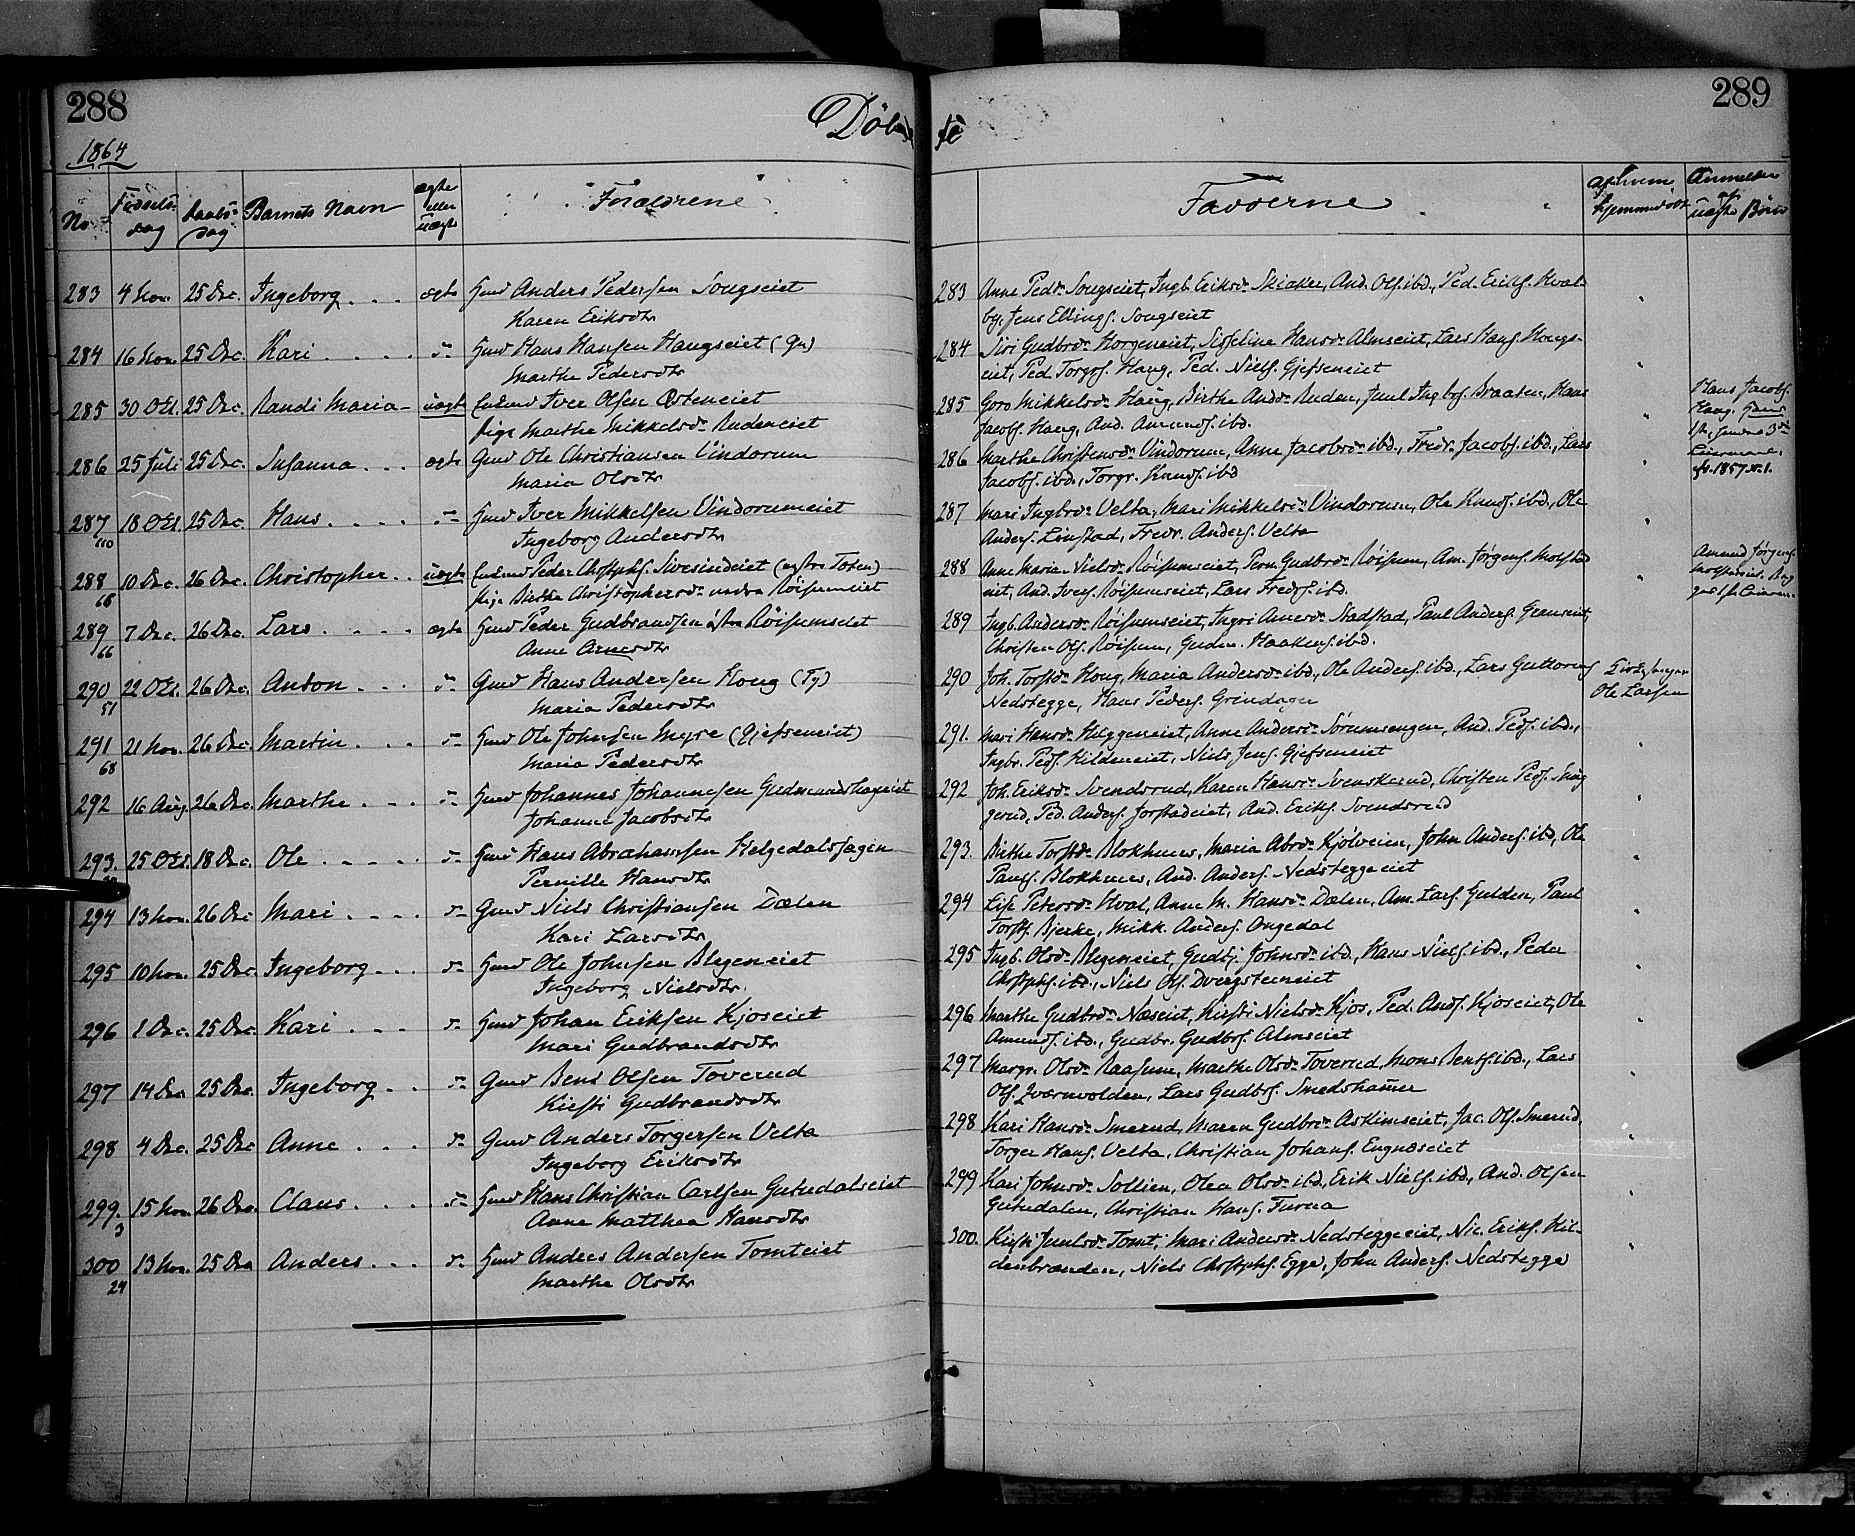 288
Döbte
289
1864
No
Fødsels-dag
Daabs-dag
Barnets Navn
ægte eller uægte
Forældrene
Fadderne
Af hvem hjemmedøbt
Anmeldte uægte Børn
283 4 Nov. 25 Dec. Ingeborg ægte Gmd Anders Pedersen Sougseiet
Karen Eriksdtr
284 16 Nov. 25 Dec. Kari Gmd Hans Hansen Haugseiet (Gr)
Marthe Pedersdtr
285 30 Oct. 25 Dec. Randi Maria uægte Iver Olsen
Pige Marthe Mikkelsdr Rudeneiet
286 25 Juli 25 Dec. Susanna ægte Gmd Ole Christiansen Vindorum
Maria Olsdtr
287 18 Oct. 25 Dec. Hans Gmd Iver Mikkelsen Vindorumeiet
110 Ingeborg Andersdtr
288 10 Dec. 26 Dec. Christopher uægte Peder Chrstphs. Sivesindeiet (Toten)
68 Pige Birthe Christophersdr Røisumeiet
289 7 Dec. 26 Dec. Lars ægte Gmd Peder Gudbrandsen Røisumeiet
66 Anne Arnesdtr
290 22 Oct. 26 Dec. Anton Gmd Hans Andersen Houg (Ty)
51 Maria Pedersdtr
291 21 Nov. 26 Dec. Martin Gmd Ole Johnsen Myre (Gjefseneiet)
68 Maria Pedersdtr
292 16 Aug. 26 Dec. Marthe Gmd Johannes Johannesen Gudmundshageiet
Johanne Jacobsdtr
293. 25 Oct. 18 Dec. Ole Gmd Hans Abrahamsen Helgedalshagen
Pernille Hansdtr
294 13 Nov. 26 Dec Mari Gmd Niels Christiansen Dælen
Kari Larsdtr
295 10 Nov. 25 Dec. Ingeborg Gmd Ole Johnsen Blegeneiet
Ingeborg Nielsdtr.
296 1 Dec. 25 Dec. Kari Gmd Johan Eriksen Kjoseiet
Mari Gudbrandsdtr
297 14 Dec 25 Dec. Ingeborg Gmd Bent Olsen Toverud
Kirsti Gudbrandsdtr
298 4 Dec. 25 Dec Anne Gmd Anders Torgersen Velta
Ingeborg Eriksdtr
299. 15 Nov. 26 Dec. Claus Gmd Hans Christian Carlsen Gutudalseiet
3 Anne Matthea Hansdtr
300 13 Nov. 25 Dec Anders Gmd Andres Andersen Tomteiet
24 Marthe Olsdtr
283 Anne Pedr. Sougseiet, Ingb. Eriksdr. Skiaker, And. Ols. ibd., Ped. Eriks. Hval-
by, Jens Ellings. Sougseiet
284 Siri Gudbrdr. Horgeneiet, Hansdr. Almseiet, Lars Hans. Hougs-
eiet, Ped. Torgrs. Haug, Ped. Niels. Gjefseneiet
285 Goro Mikkelsdr. Haug, Birthe Andr. Ruden, Juul Ingbrs. Braaten, Hans
Jacobs. Haug, And. Amunds. ibd.
286 Marthe Christensdr. Vindorum, Anne Jacobsdr. ibd., Fredr. Jacobs. ibd., Lars
Jacobs. ibd., Torgr. Knuds. ibd
287 Mari Ingbrdr. Velta, Mari Mikkelsdr. Vindorum, Ole Knuds. ibd., Ole
Anders. Linstad, Fredr. Anders. Velta
288 Anne Maria Nielsdr. Røisumseiet, Pern. Gudbrdr. Røisum, Am. Jørgens. Molstad
eiet, And. Ivers. Røisumseiet, Lars Freds. ibd.
289 Ingb. Andersdr. Røisumseiet, Ingri Arnesdr. Stadstad, Paul Anders. Granseiet,
Christen Ols. Røisum, Gudm. Haakens. ibd.
290 Joh. Torstdr. Houg, Maria Andersdr. ibd., Ole Anders. ibd., Lars Guttorms
Nedstegge, Hans Peders. Grindager
Kirkesanger
Ole Larsen
291. Mari Hansdr. Heggeneiet, Anne Andersdr. Sørumsengen, And. Peds. ibd.,
Ingbr. Peds. Hildeneiet, Niels Jens. Gjefseneiet
292 Joh. Eriksdr. Svendsrud, Karen Hansdr. Svenskerud, Christen Peds.
gerud, Ped. Anders. Jorstadeiet, And. Eriks. Svendsrud
293. Birthe Torstdr. Blokhuus, Maria Abrdr. Kjølveien, John Anders. ibd, Ole
Pauls. Blokhuus, And. Anders. Nedsteggeeiet
294 Lise Petersdr. Hval, Anne M. Hansdr. Dælen, Am. Lars. Gulden, Paul
Torsts. Bjerke, Mikk. Anders. Ongedal
295 Ingb. Olsdr. Blegeneiet, Gudbj. Johnsdr. ibd., Hans Niels. ibd., Peder
Chrstphs. ibd., Niels Ols. Dvergsteneiet
296 Marthe Gudbrdr. Næseiet, Kirsti Nielsdr. Kjos, Ped. Ands. Kjoseiet, Ole
Amunds. ibd., Gudbr. Gudbrs. Almseiet
297 Margr. Olsdr. Raasum, Marthe Olsdr. Toverud, Mons Bents. ibd., Lars
Ols. Kværnvolden, Lars Gudbrs. Smedshaum
298 Kari Hansdr. Smerud, Maren Gudbrdr. Askimseiet, Jac. Ols. Smerud,
Torger Hans. Velta, Christian Johans. Engnæseiet
299 Kari Johnsdr. Sollien, Olea Olsdr. ibd., Erik Niels. ibd., And. Olsen
Gutudalen, Christian Hans. Furua
300. Kirsti Juulsdr. Tomt, Mari Andersdr. Nedsteggeeiet, Nic. Eriks. Hil-
denbranden, Niels Chrstphs. Egge, John Anders. Nedstegge
Hans Jacobs.
Haug. Hans
3die
Leiermaal,
1857 N. 1.
Amund Jørgens.
Molstadeiet.